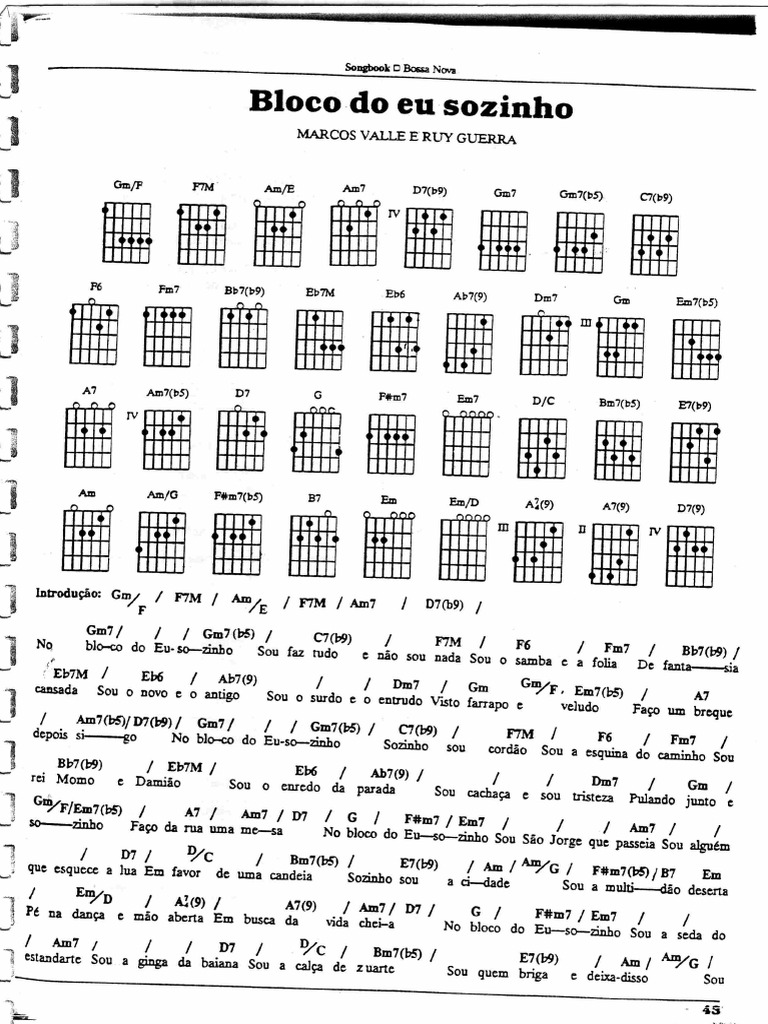 Songbook □ Bossa Nova
Bloco do eu sozinho
MARCOS VALLE E RUY GUERRA
Gm/F F7M Am/E Am7 D7(b9) Gm7 Gm7(b5) C7(b9)
IV
F6 Fm7 Bb7(b9) Eb7M Eb6 Ab7(9) Dm7 Gm Em7(b5)
III
A7 Am7(b5) D7 G F#m7 Em7 D/C Bm7(b5) E7(b9)
IV
Am Am/G F#m7(b5) B7 Em Em/D A7/4(9) A7(9) D7(9)
III II IV
Introdução: Gm/F / F7M / Am/E / F7M / Am7 / D7(b9) /
Gm7 / / / Gm7(b5) / C7(b9) / F7M / F6 / Fm7 / Bb7(b9) /
No blo-co do Eu-so-zinho Sou faz tudo e não sou nada Sou o samba e a folia De fanta——sia
Eb7M / Eb6 / Ab7(9) / / / Dm7 / Gm Gm/F Em7(b5) / A7
cansada Sou o novo e o antigo Sou o surdo e o entrudo Visto farrapo e veludo Faço um breque
/ Am7(b5)/ D7(b9) / Gm7 / / / Gm7(b5) / C7(b9) / F7M / F6 / Fm7 /
depois si——go No blo-co do Eu-so-zinho Sozinho sou cordão Sou a esquina do caminho Sou
Bb7(b9) / Eb7M / Eb6 / Ab7(9) / / / Dm7 / Gm /
rei Momo e Damião Sou o enredo da parada Sou cachaça e sou tristeza Pulando junto e
Gm/F/Em7(b5) / A7 / Am7 / D7 / G / F#m7 / Em7 / / / Am7 / /
so——zinho Faço da rua uma me—sa No bloco do Eu—so—zinho Sou São Jorge que passeia Sou alguém
/ D7 / D/C / Bm7(b5) / E7(b9) / Am / Am/G / F#m7(b5) / B7 Em
que esquece a lua Em favor de uma candeia Sozinho sou a ci—dade Sou a multi—dão deserta
/ Em/D / A7/4(9) / A7(9) / Am7 / D7 / G / F#m7 / Em7 / /
Pé na dança e mão aberta Em busca da vida chei-a No bloco do Eu—so—zinho Sou a seda do
/ Am7 / / / D7 / D/C / Bm7(b5) / E7(b9) / Am / Am/G /
estandarte Sou a ginga da baiana Sou a calça de zuarte Sou quem briga e deixa-disso Sou
45